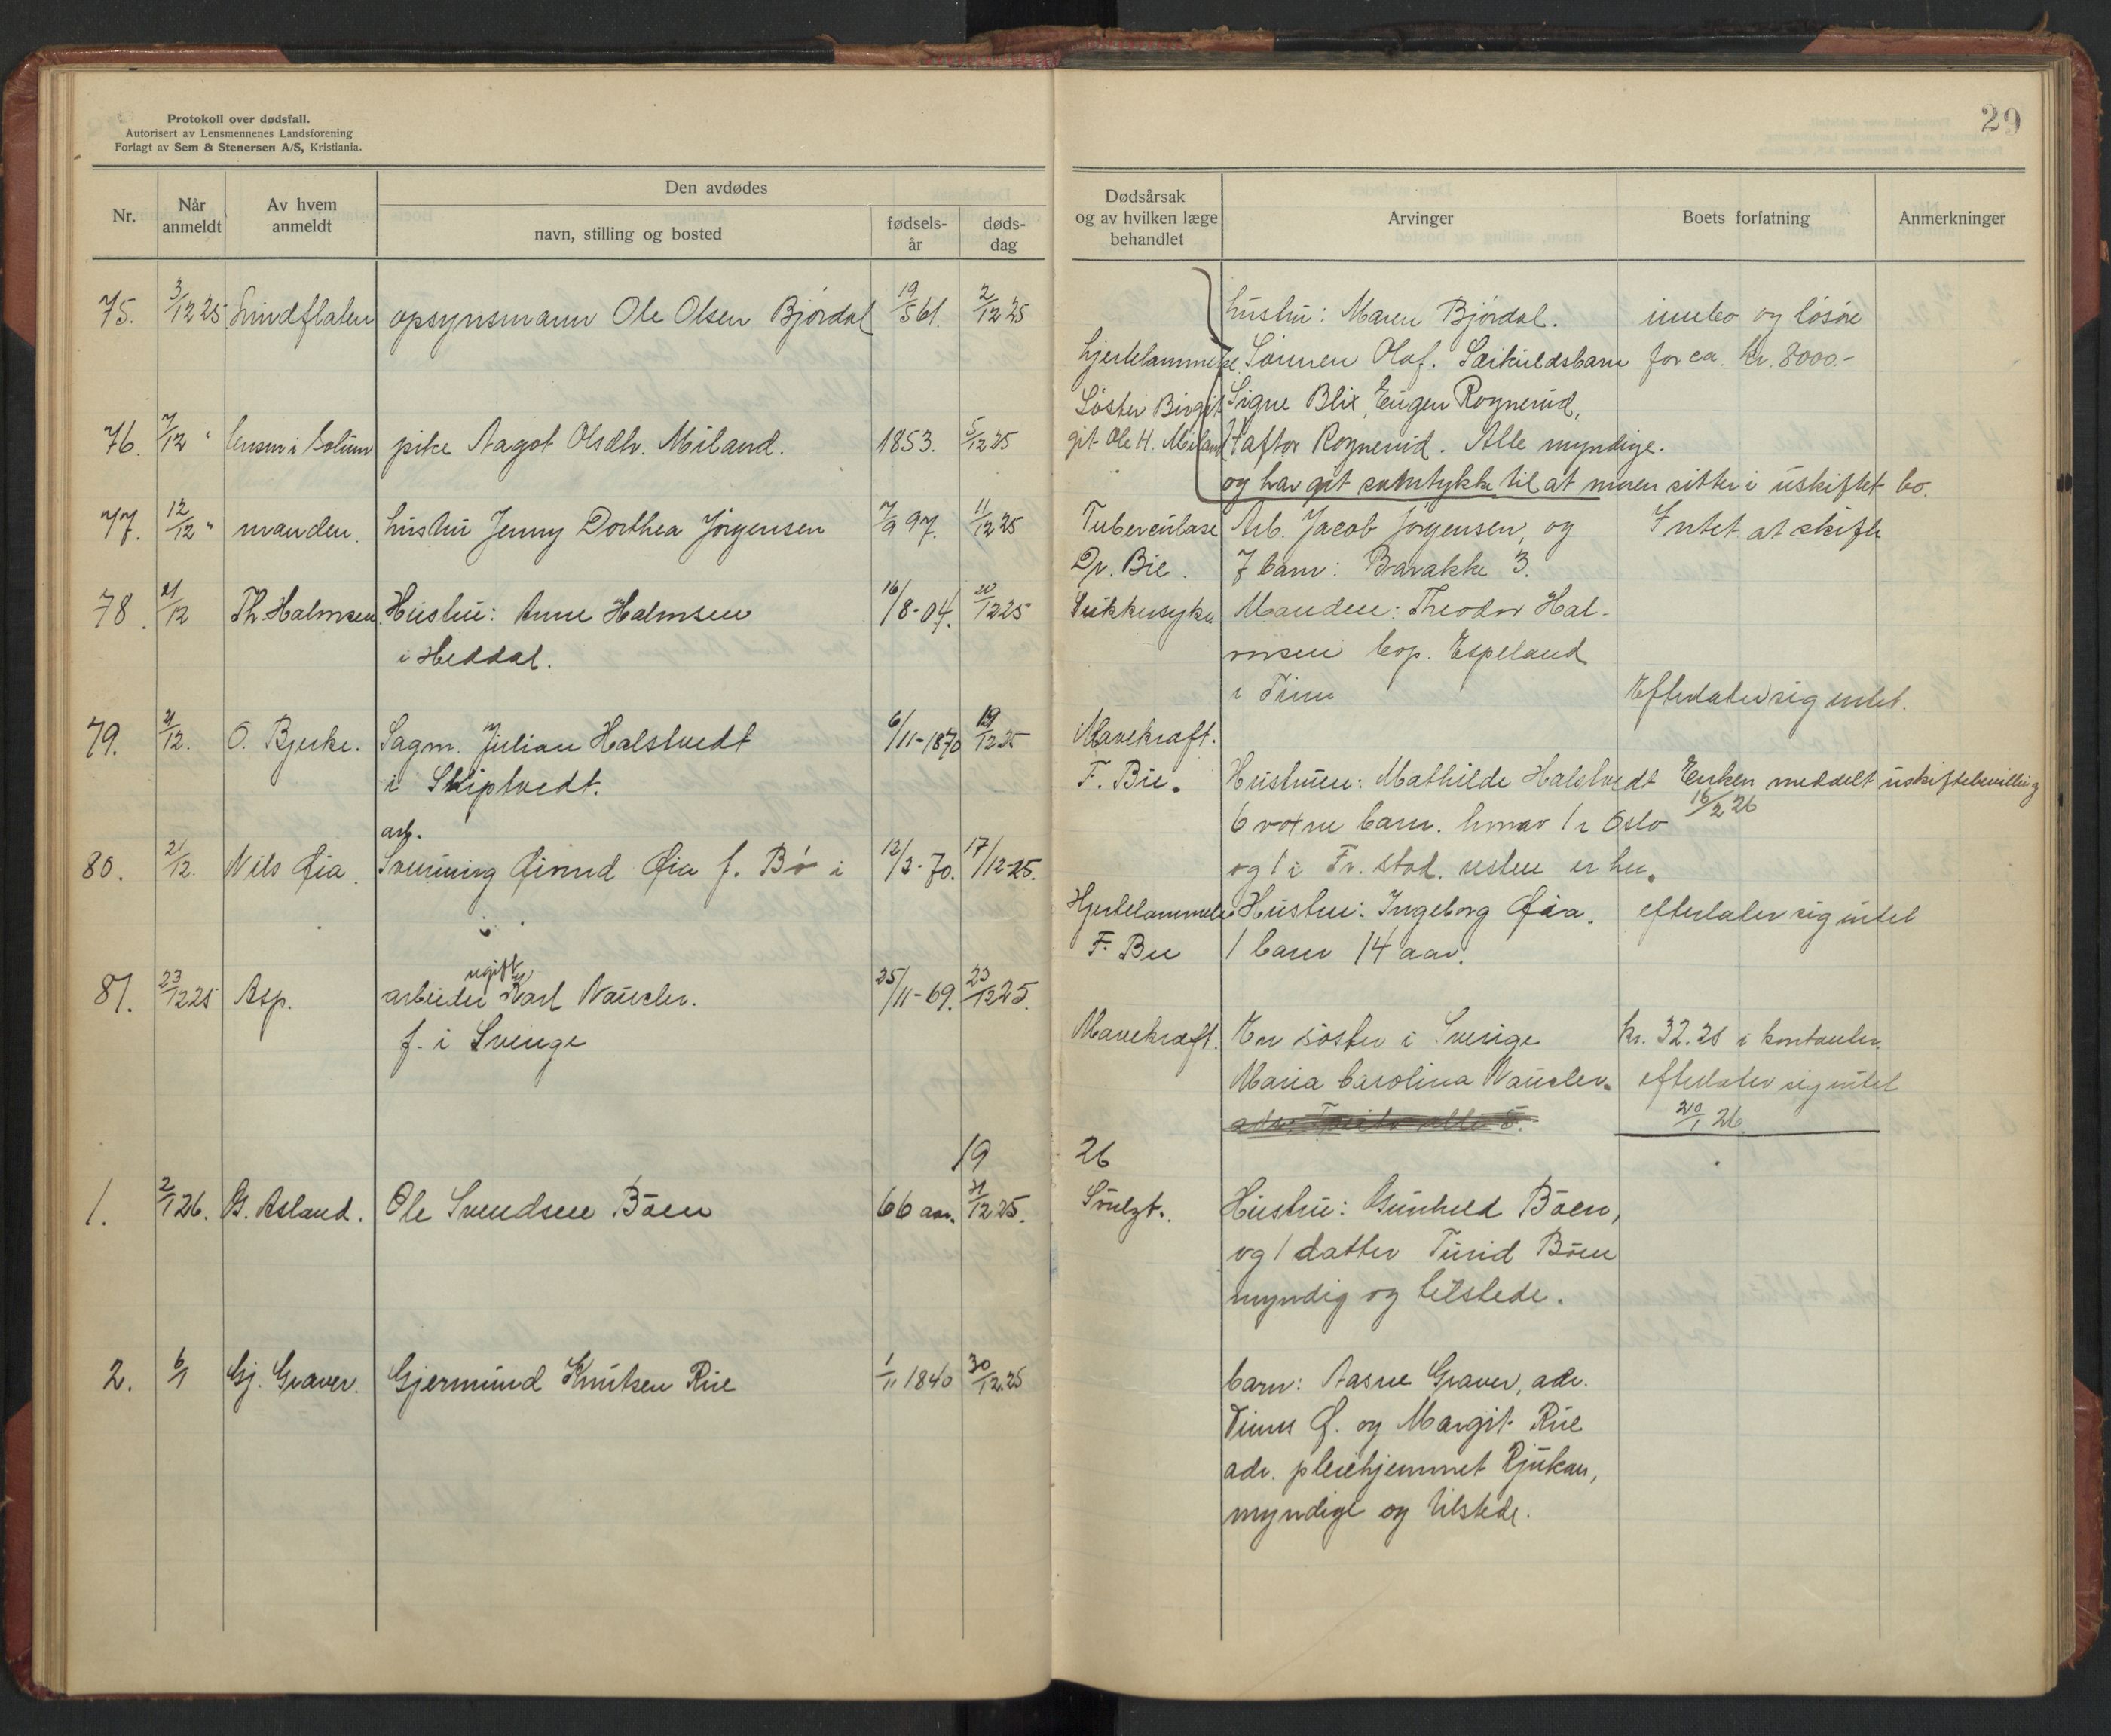 Protokoll over dødsfall.
Autorisert av Lensmennenes Landsforening
Forlagt av Sem & Stenersen A/S, Kristiania.
Nr.
Når anmeldt
Av hvem anmeldt
Den avdødes
navn, stilling og bosted
fødsels-år
døds-dag
75. 3/12 25 Lindflaten opsynsmann Ole Olsen Bjørdal 19/5 61. 2/12 25
76. 7/12 " lensm i Solum pike Aagot Olsdtr. Miland. 1853. 5/12 25
77. 12/12 " manden. hustru Jenny Dorthea Jörgensen 7/9 97. 11/12 25
78. 21/12 Th. Halmsen Hustru: Anne Halmsen 16/8-04. 20/12 25
i Heddal.
79. 21/12. O. Bjerke. Sagm. Julian Halstvedt 6/11-1870 19/12 25
i Skiptvedt.
arb.
80. 21/12. Nils Øia. Svenning Øinnd Øia f. Bø i 12/3-70. 17/12-25.
ugift
81. 23/12 25 Asp. arbeider Karl Naucler. 25/11-69. 23/12 25.
f. i Sverige
19
1. 2/1 26. G. Asland. Ole Svendsen Böen 66 aar. 31/12 25.
2. 6/1 Gj. Graver. Gjermund Knutsen Rue 1/11 1840 30/12.25
29
Dødsårsak og av hvilken læge behandlet
Arvinger
Boets forfatning
Anmerkninger
hustru: Maren Björdal. innbo og lösöre
hjertelammelse. Sönnen Olaf. Særkuldsbarn for ca. kr. 8000.-
Söster Birgit Signe Blix, Eugen Roynerud,
git Ole H. Miland Haftor Roynerud. Alle myndige.
og har git samtykke til at moren sitter i uskiftet bo.
Tuberculose Arb. Jacob Jörgensen, og Intet at skifte
Dr. Bie. 7 barn: Barakke 3.
Sukkersyke Manden: Theodor Hal-
msen bop. Espeland
i Tinn Efterlater sig intet.
Mavekræft.
F. Bie. Hustruen: Mathilde Halstvedt Enken meddelt uskiftebevilling
6 voxne barn. hvorav 1 i Oslo 16/2 26
og 1 i Fr. stad. resten er her.
Hjertelammelse Hustru: Ingeborg Øia. efterlater sig intet
F. Bie 1 barn 14 aar.
Mavekræft. En söster i Sverige kr. 32.28 i kontanter.
Maria Carolina Naucler. efterlater sig intet
20/1 26.
26
Svulzt. Hustru: Gunhild Böen,
og 1 datter Turid Böen
myndig og tilstede.
barn: Aasne Graver, adr.
Tinns Ø. og Margit Rue
adr. pleiehjemmet Rjukan,
myndige og tilstede.